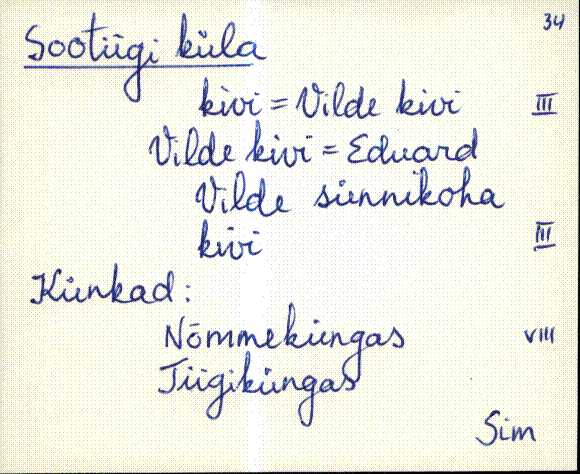 34
Sootiigi küla
kivi = Vilde kivi III
Vilde kivi = Eduard
Vilde sünnikoha
kivi III
Künkad:
Nõmmeküngas VIII
Tiigiküngas
Sim